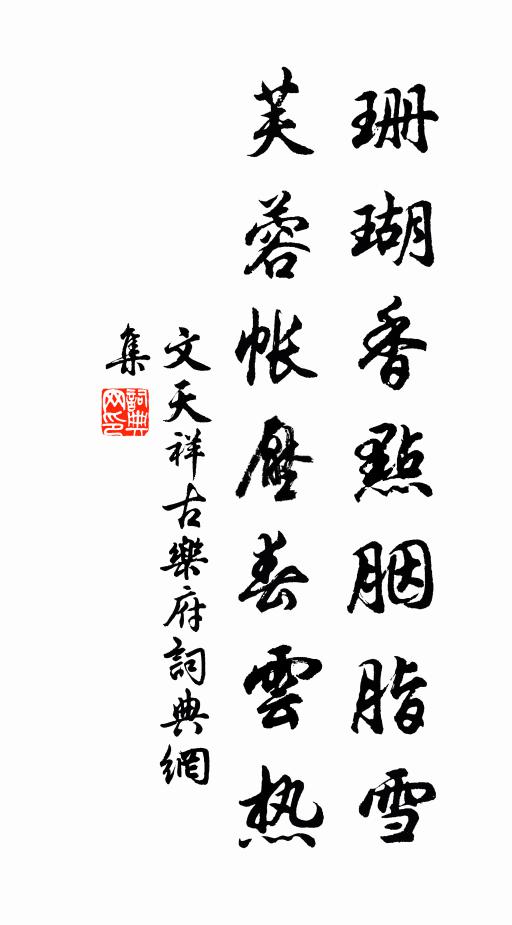 珊瑚香點胭脂雪
芙蓉帳壓春雲热
文天祥古樂府詞典網
集
詞典网印